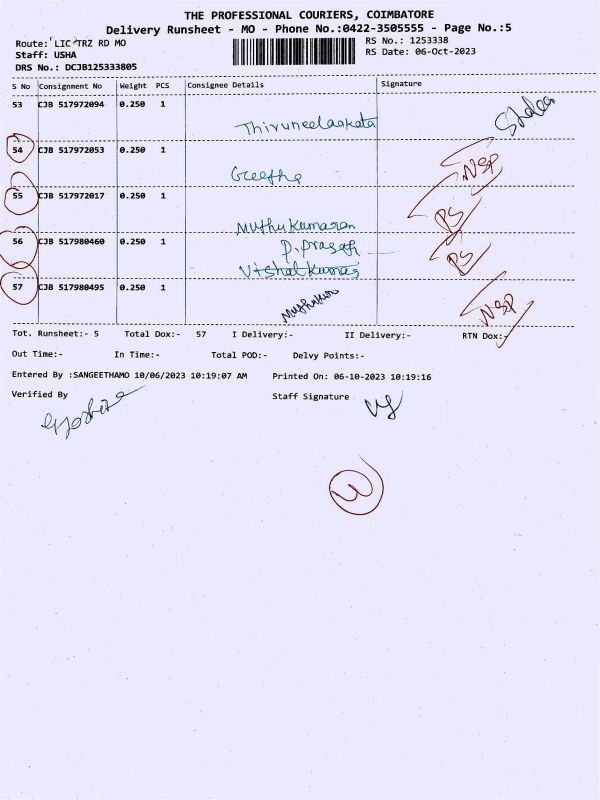 THE PROFESSIONAL COURIERS, COIMBATORE
Delivery Runsheet - MO - Phone No.:0422-3505555 - Page No.:5
Route: LIC TRZ RD MO RS No.: 1253338
Staff: USHA RS Date: 06-Oct-2023
DRS No.: DCJB125333805
S No Consignment No Weight PCS Consignee Details Signature
53 CJB 517972094 0.250 1
Thiruneelaakata
54 CJB 517972053 0.250 1 NSP
Geetha
55 CJB 517972017 0.250 1 PS
Muthukumaran
56 CJB 517980460 0.250 1 PS
P. Prasath
Vishal Kumar
57 CJB 517980495 0.250 1 NSP
Tot. Runsheet:- 5 Total Dox:- 57 I Delivery:- II Delivery:- RTN Dox:-
Out Time:- In Time:- Total POD:- Delvy Points:-
Entered By :SANGEETHAMO 10/06/2023 10:19:07 AM Printed On: 06-10-2023 10:19:16
Verified By Staff Signature